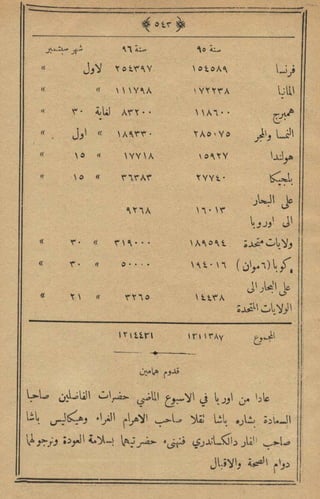 ﴿ ٥٤٣ ﴾
سنة ٩٥ سنة ٩٦ شهر سبتمبر
فرنسا ١٥٤٥٨٩ ٢٥٤٣٩٧ لاول »
المانيا ١٧٢٢٣٨ ١١١٧٩٨ » »
همبرج ١١٨٦٠٠ ٨٣٢٠٠ لغاية ٣٠ »
النمسا والمجر ٢٨٥٠٧٥ ١٨٩٣٣٠ » اول »
هولندا ١٥٩٢٧ ١٧٧١٨ » ١٥ »
بلجيكا ٢٧٧٤٠ ٣٦٣٨٣ » ١٥ »
على البحار
١٦٠١٣ ٩٢٦٨
الى اوروبا
ولايات متحدة ١٨٩٥٩٤ ٣١٩٠٠٠ » ٣٠ »
كوبا (٦ موان) ١٩٤٠١٦ ٥٠٠٠٠ » ٣٠ »
على البحار الى
١٤٤٣٨ ٣٢٦٥ » ٢١ »
الولايات المتحدة
المجموع ١٣١١٣٨٧ ١٢١٤٤٣١
قدوم همامين
عادا من اوربا في الاسبوع الماضي حضرات الفاضلين صاحبا
السعادة بشاره باشا نقلا صاحب الاهرام الغراء وهيكاليس باشا
صاحب الفار دالكساندري فنهنىء حضرتيهما بسلامة العودة ونرجولهما
دوام الصحة والاقبال